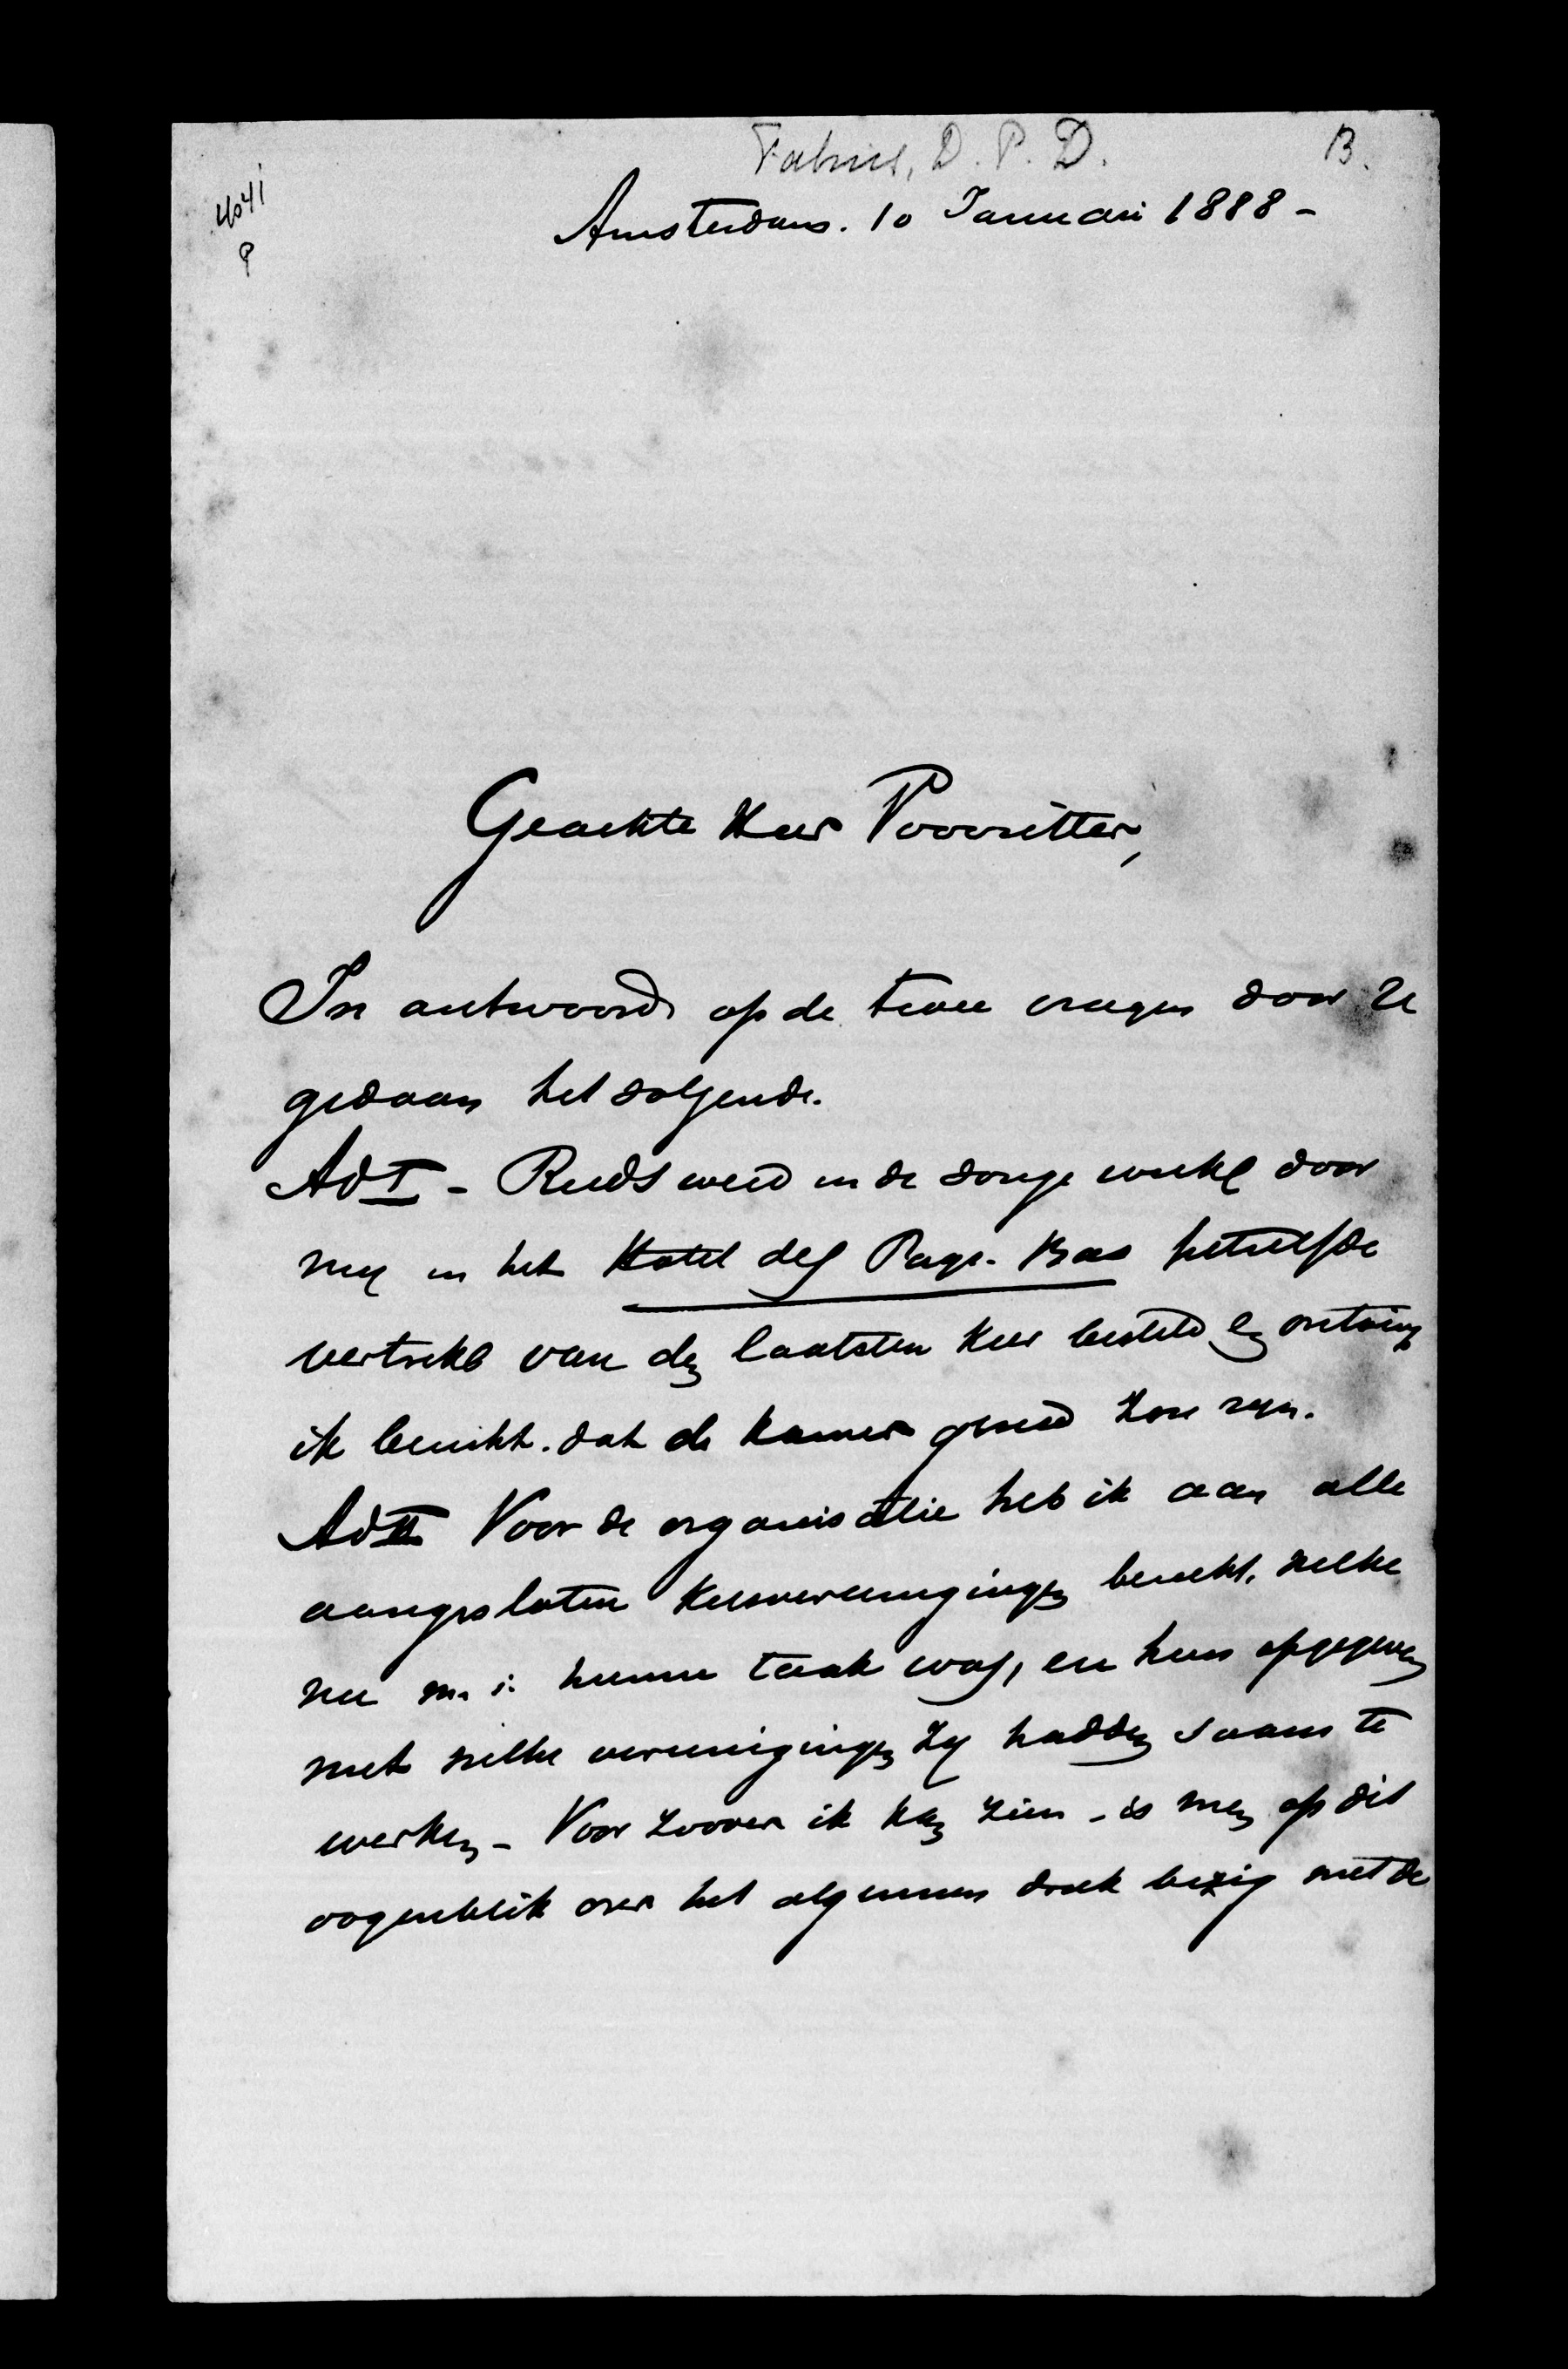 Fabius, D. P. D.
B.
4041
P
Amsterdam. 10 Januari 1888 -
Geachte Heer Voorzitter,
In antwoord op de twee vragen door U
gedaan het volgende.
Ad I - Reeds werd in de vorige week door
mij in het Hotel des Pays-Bas hetzelfde
vertrek van den laatsten keer besteld en ontving
ik bericht. dat de kamer gereed zou zijn.
Ad II Voor de organisatie heb ik aan alle
aangesloten Kiesvereenigingen bericht. welke
nu m. i. hunne taak was, en hun opgegeven
met welke vereenigingen zij hadden saam te
werken - Voor zoover ik kan zien - is men op dit
oogenblik over het algemeen druk bezig met de